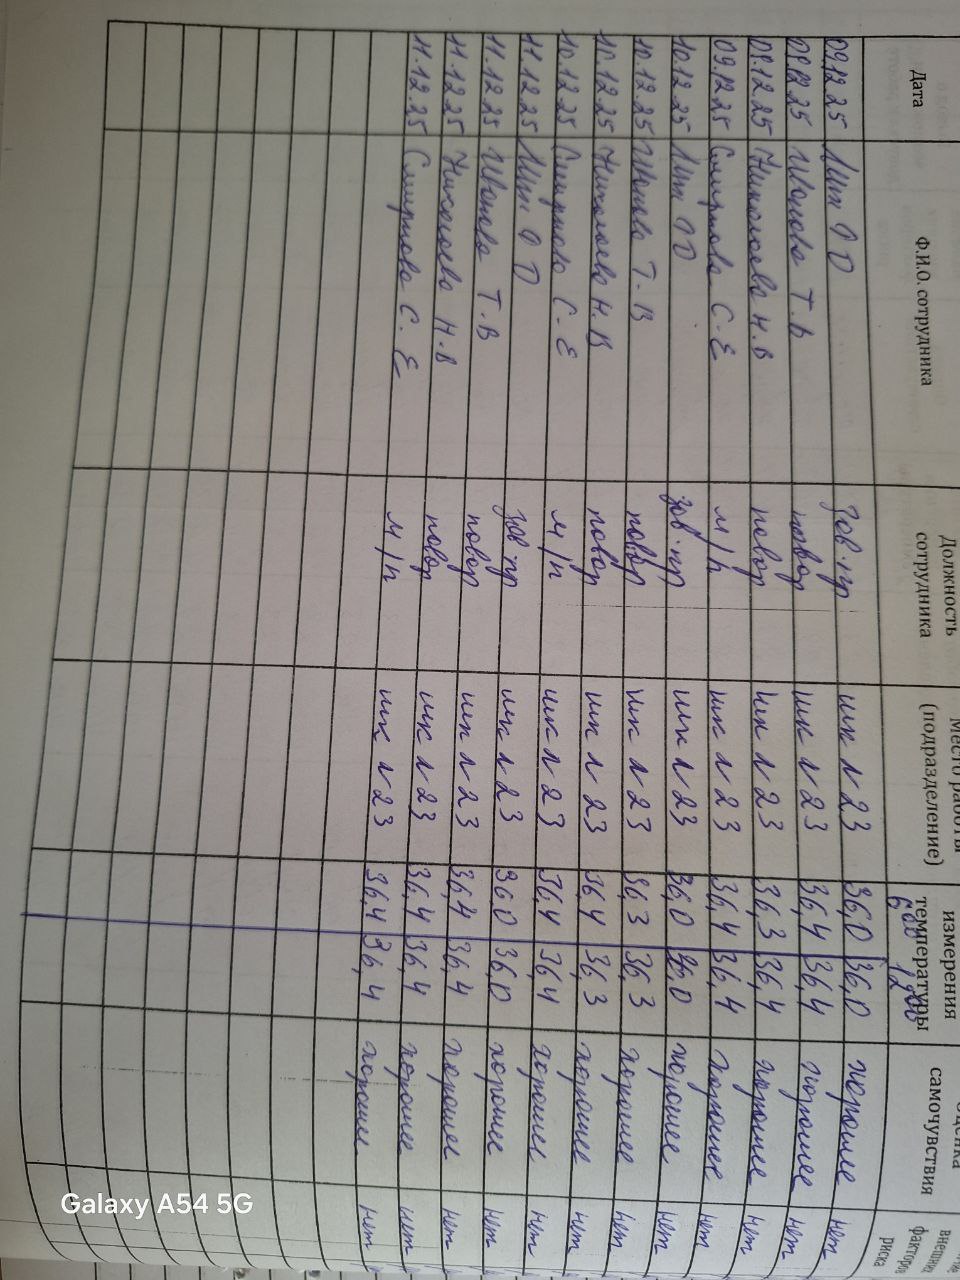 Дата Ф.И.О. сотрудника Должность сотрудника Место работы (подразделение) измерения температуры 6 00 12 00 самочувствия внешних факторов риска
09.12.25 Лит О О Зав.пр шк л 23 36,0 36,0 хорошее нет
09.12.25 Иванова Т. В повар шк л 23 36,4 36,4 хорошее нет
09.12.25 Николаева Н.В повар шк л 23 36,3 36,4 хорошее нет
09.12.25 Смирнова С.Е м/п шк л 23 36,4 36,4 хорошее нет
10.12.25 Лит О О зав.пр шк л 23 36,0 36,0 хорошее нет
10.12.25 Иванова Т.В повар шк л 23 36,3 36,3 хорошее нет
10.12.25 Николаева Н.В повар шк л 23 36,4 36,3 хорошее нет
10.12.25 Смирнова С.Е м/п шк л 23 36,4 36,4 хорошее нет
11.12.25 Лит О О зав.пр шк л 23 36,0 36,0 хорошее нет
11.12.25 Иванова Т.В повар шк л 23 36,4 36,4 хорошее нет
11.12.25 Николаева Н.В повар шк л 23 36,4 36,4 хорошее нет
11.12.25 Смирнова С.Е м/п шк л 23 36,4 36,4 хорошее нет
Galaxy A54 5G